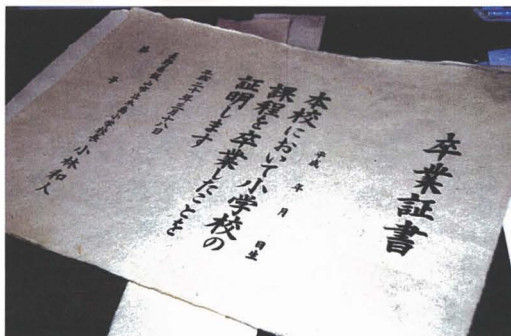 卒業証書
平成 年 月 日生
本校において小学校の
課程を卒業したことを
証明します
平成二十年三月十八日
長野県飯山市立木島小学校長 小林和人
第 号